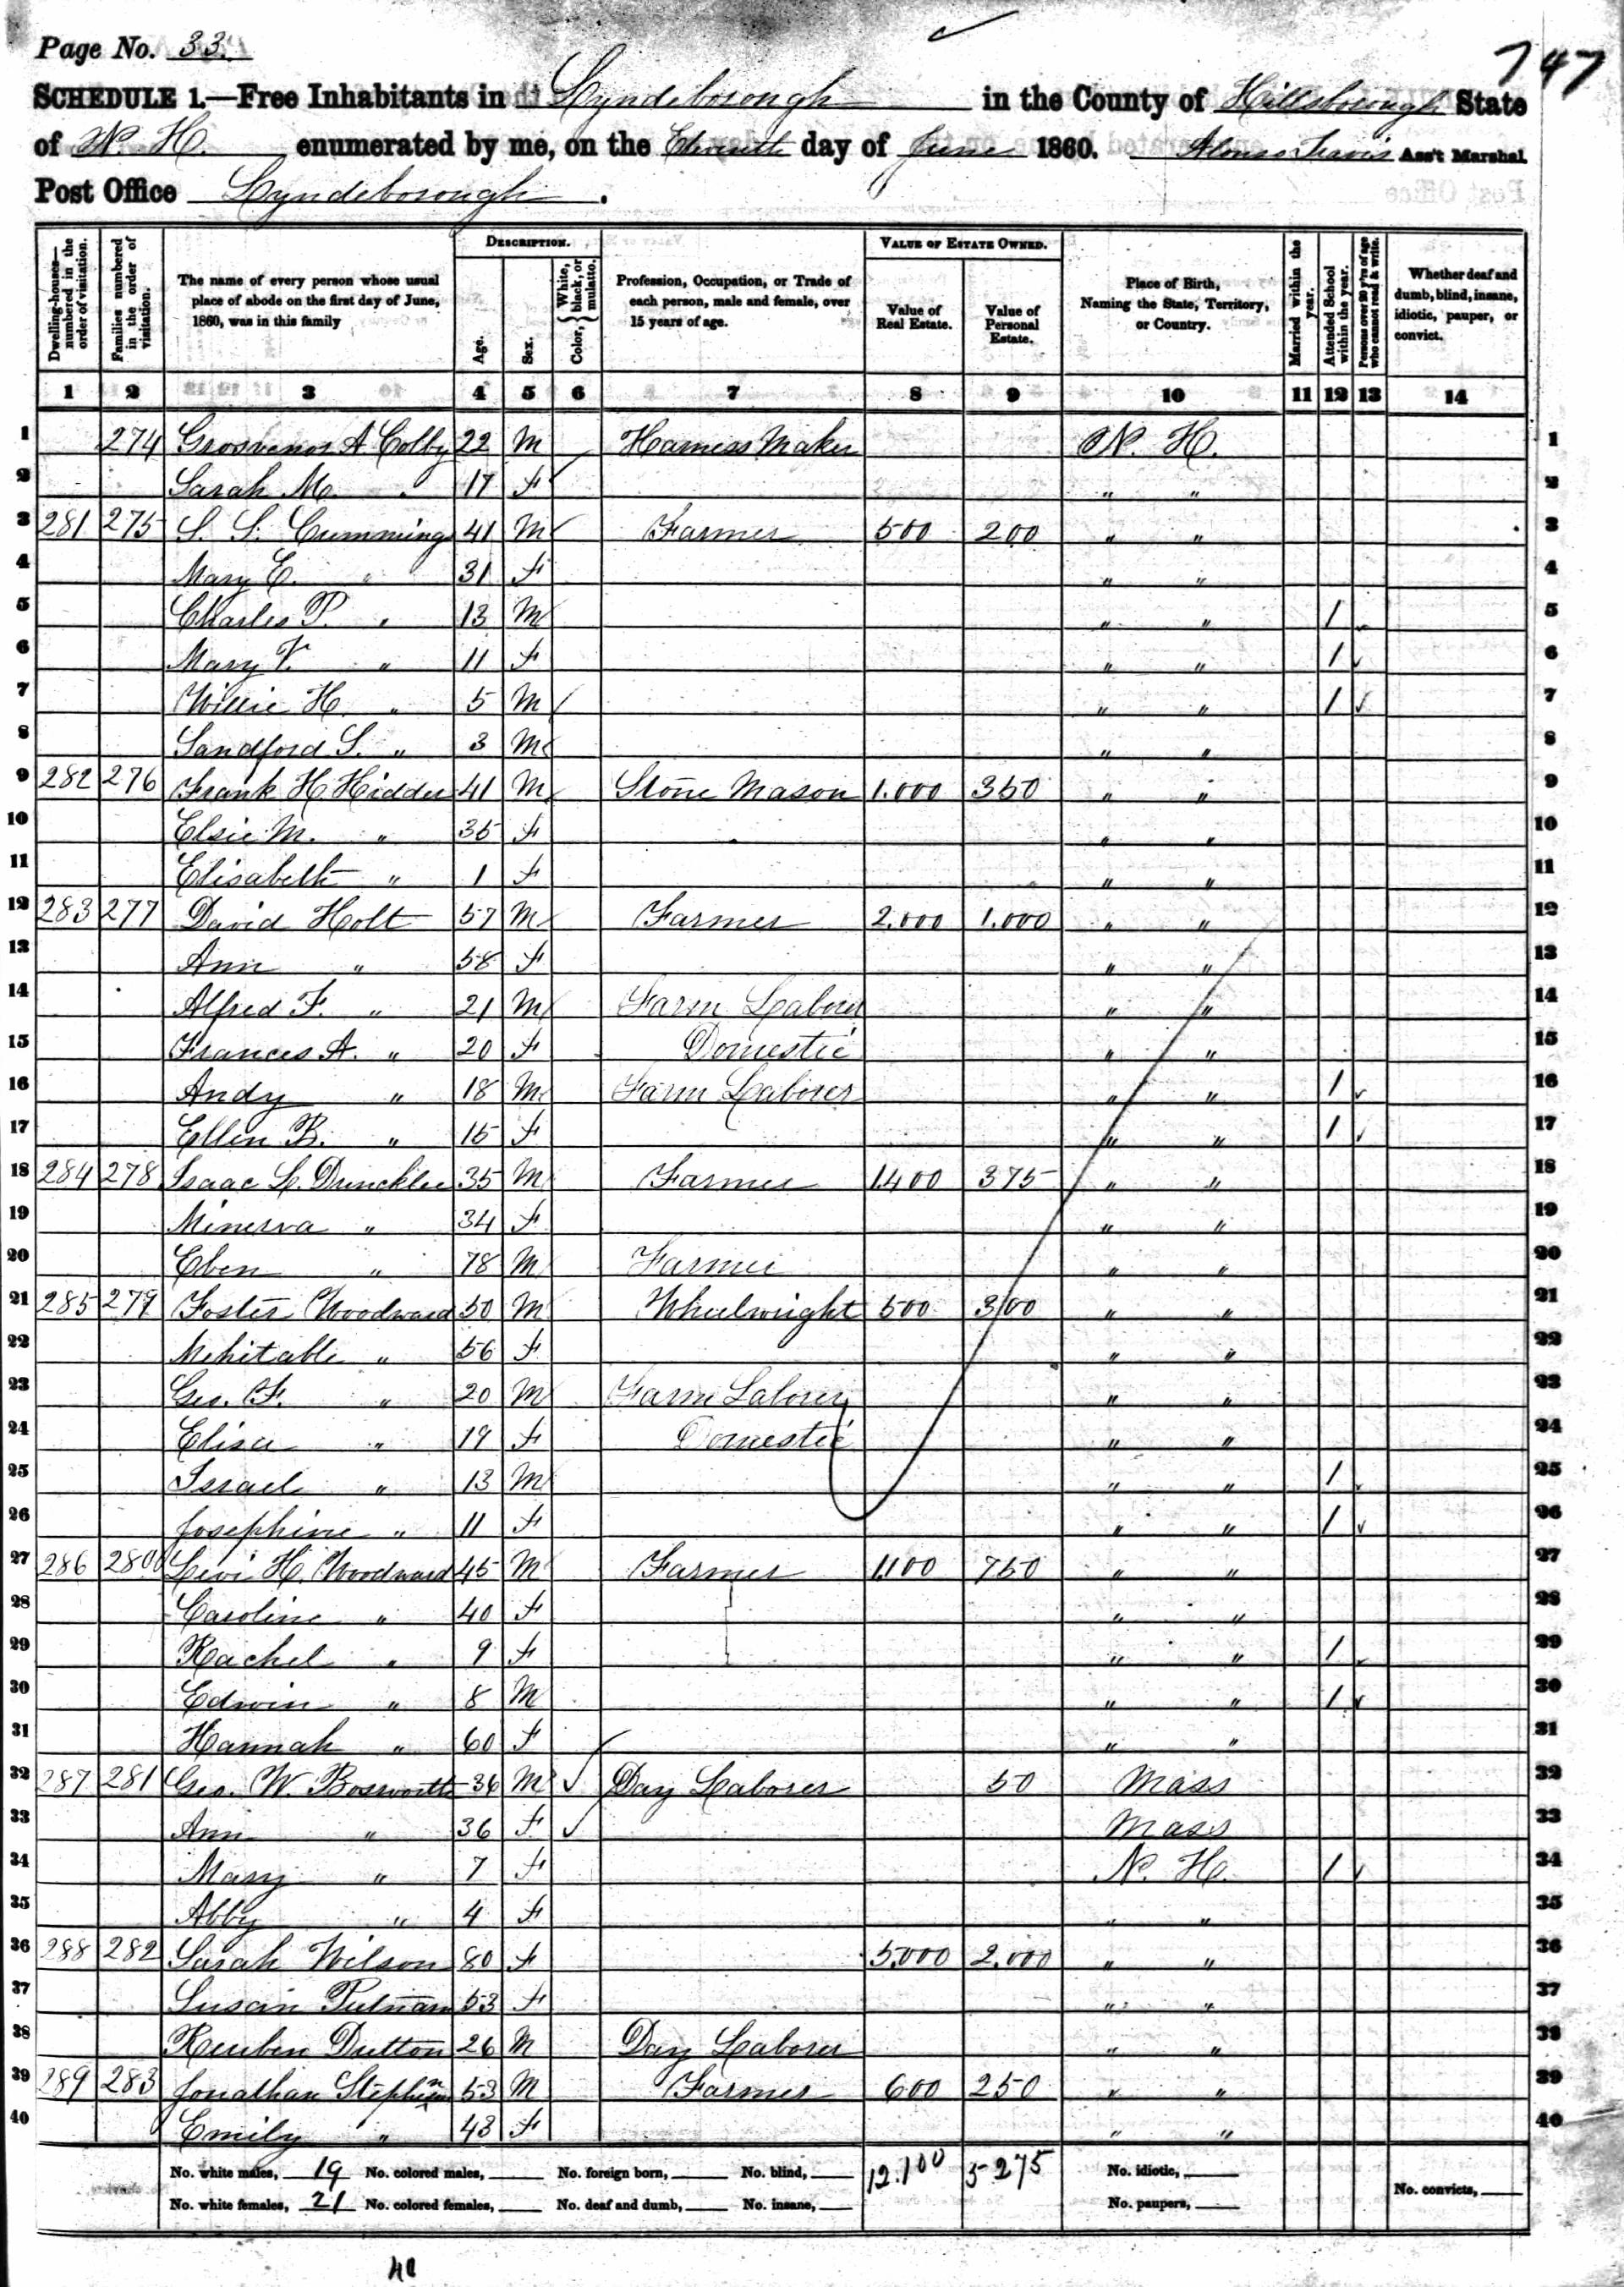 Page No. 33.
747
SCHEDULE 1.—Free Inhabitants in Lyndeborough in the County of Hillsborough State
of N. H. enumerated by me, on the Eleventh day of June 1860. Alonzo Travis Ass't Marshal.
Post Office Lyndeborough.
Dwelling-houses—numbered in the order of visitation.
Families numbered in the order of visitation.
The name of every person whose usual place of abode on the first day of June, 1860, was in this family
DESCRIPTION.
Age.
Sex.
Color, { White, black, or mulatto.
Profession, Occupation, or Trade of each person, male and female, over 15 years of age.
VALUE OF ESTATE OWNED.
Value of Real Estate.
Value of Personal Estate.
Place of Birth, Naming the State, Territory, or Country.
Married within the year.
Attended School within the year.
Persons over 20 y'rs of age who cannot read & write.
Whether deaf and dumb, blind, insane, idiotic, pauper, or convict.
1 2 3 4 5 6 7 8 9 10 11 12 13 14
1 274 Grosvenor A Colby 22 M Harness Maker N. H. 1
2 Sarah M. " 17 F " " 2
3 281 275 S. S. Cummings 41 M Farmer 500 200 " " 3
4 Mary E. " 31 F " " 4
5 Charles P. " 13 M " " 1 5
6 Mary V. " 11 F " " 1 6
7 Willie H. " 5 M " " 1 7
8 Sandford S. " 3 M " " 8
9 282 276 Frank H Kidder 41 M Stone Mason 1.000 350 " " 9
10 Elsie M. " 35 F " " 10
11 Elisabeth " 1 F " " 11
12 283 277 David Holt 57 M Farmer 2.000 1.000 " " 12
13 Ann " 58 F " " 13
14 Alfred F. " 21 M Farm Laborer " " 14
15 Frances A. " 20 F Domestic " " 15
16 Andy " 18 M Farm Laborer " " 1 16
17 Ellen B. " 15 F " " 1 17
18 284 278 Isaac L. Duncklee 35 M Farmer 1400 375 " " 18
19 Minerva " 34 F " " 19
20 Eben " 78 M Farmer " " 20
21 285 279 Foster Woodward 50 M Wheelwright 500 300 " " 21
22 Mehitable " 56 F " " 22
23 Geo. F. " 20 M Farm Laborer " " 23
24 Elisa " 19 F Domestic " " 24
25 Israel " 13 M " " 1 25
26 Josephine " 11 F " " 1 26
27 286 280 Levi H. Woodward 45 M Farmer 1100 750 " " 27
28 Caroline " 40 F " " 28
29 Rachel " 9 F " " 1 29
30 Edwin " 8 M " " 1 30
31 Hannah " 60 F " " 31
32 287 281 Geo. W. Bosworth 36 M Day Laborer 50 Mass 32
33 Ann " 36 F Mass 33
34 Mary " 7 F N. H. 1 34
35 Abby " 4 F " " 35
36 288 282 Sarah Wilson 80 F 5.000 2.000 " " 36
37 Susan Putnam 53 F " " 37
38 Reuben Dutton 26 M Day Laborer " " 38
39 289 283 Jonathan Stephen 53 M Farmer 600 250 " " 39
40 Emily " 43 F " " 40
No. white males, 19 No. colored males, No. foreign born, No. blind, 12.100 5275 No. idiotic,
No. white females, 21 No. colored females, No. deaf and dumb, No. insane, No. paupers, No. convicts,
40